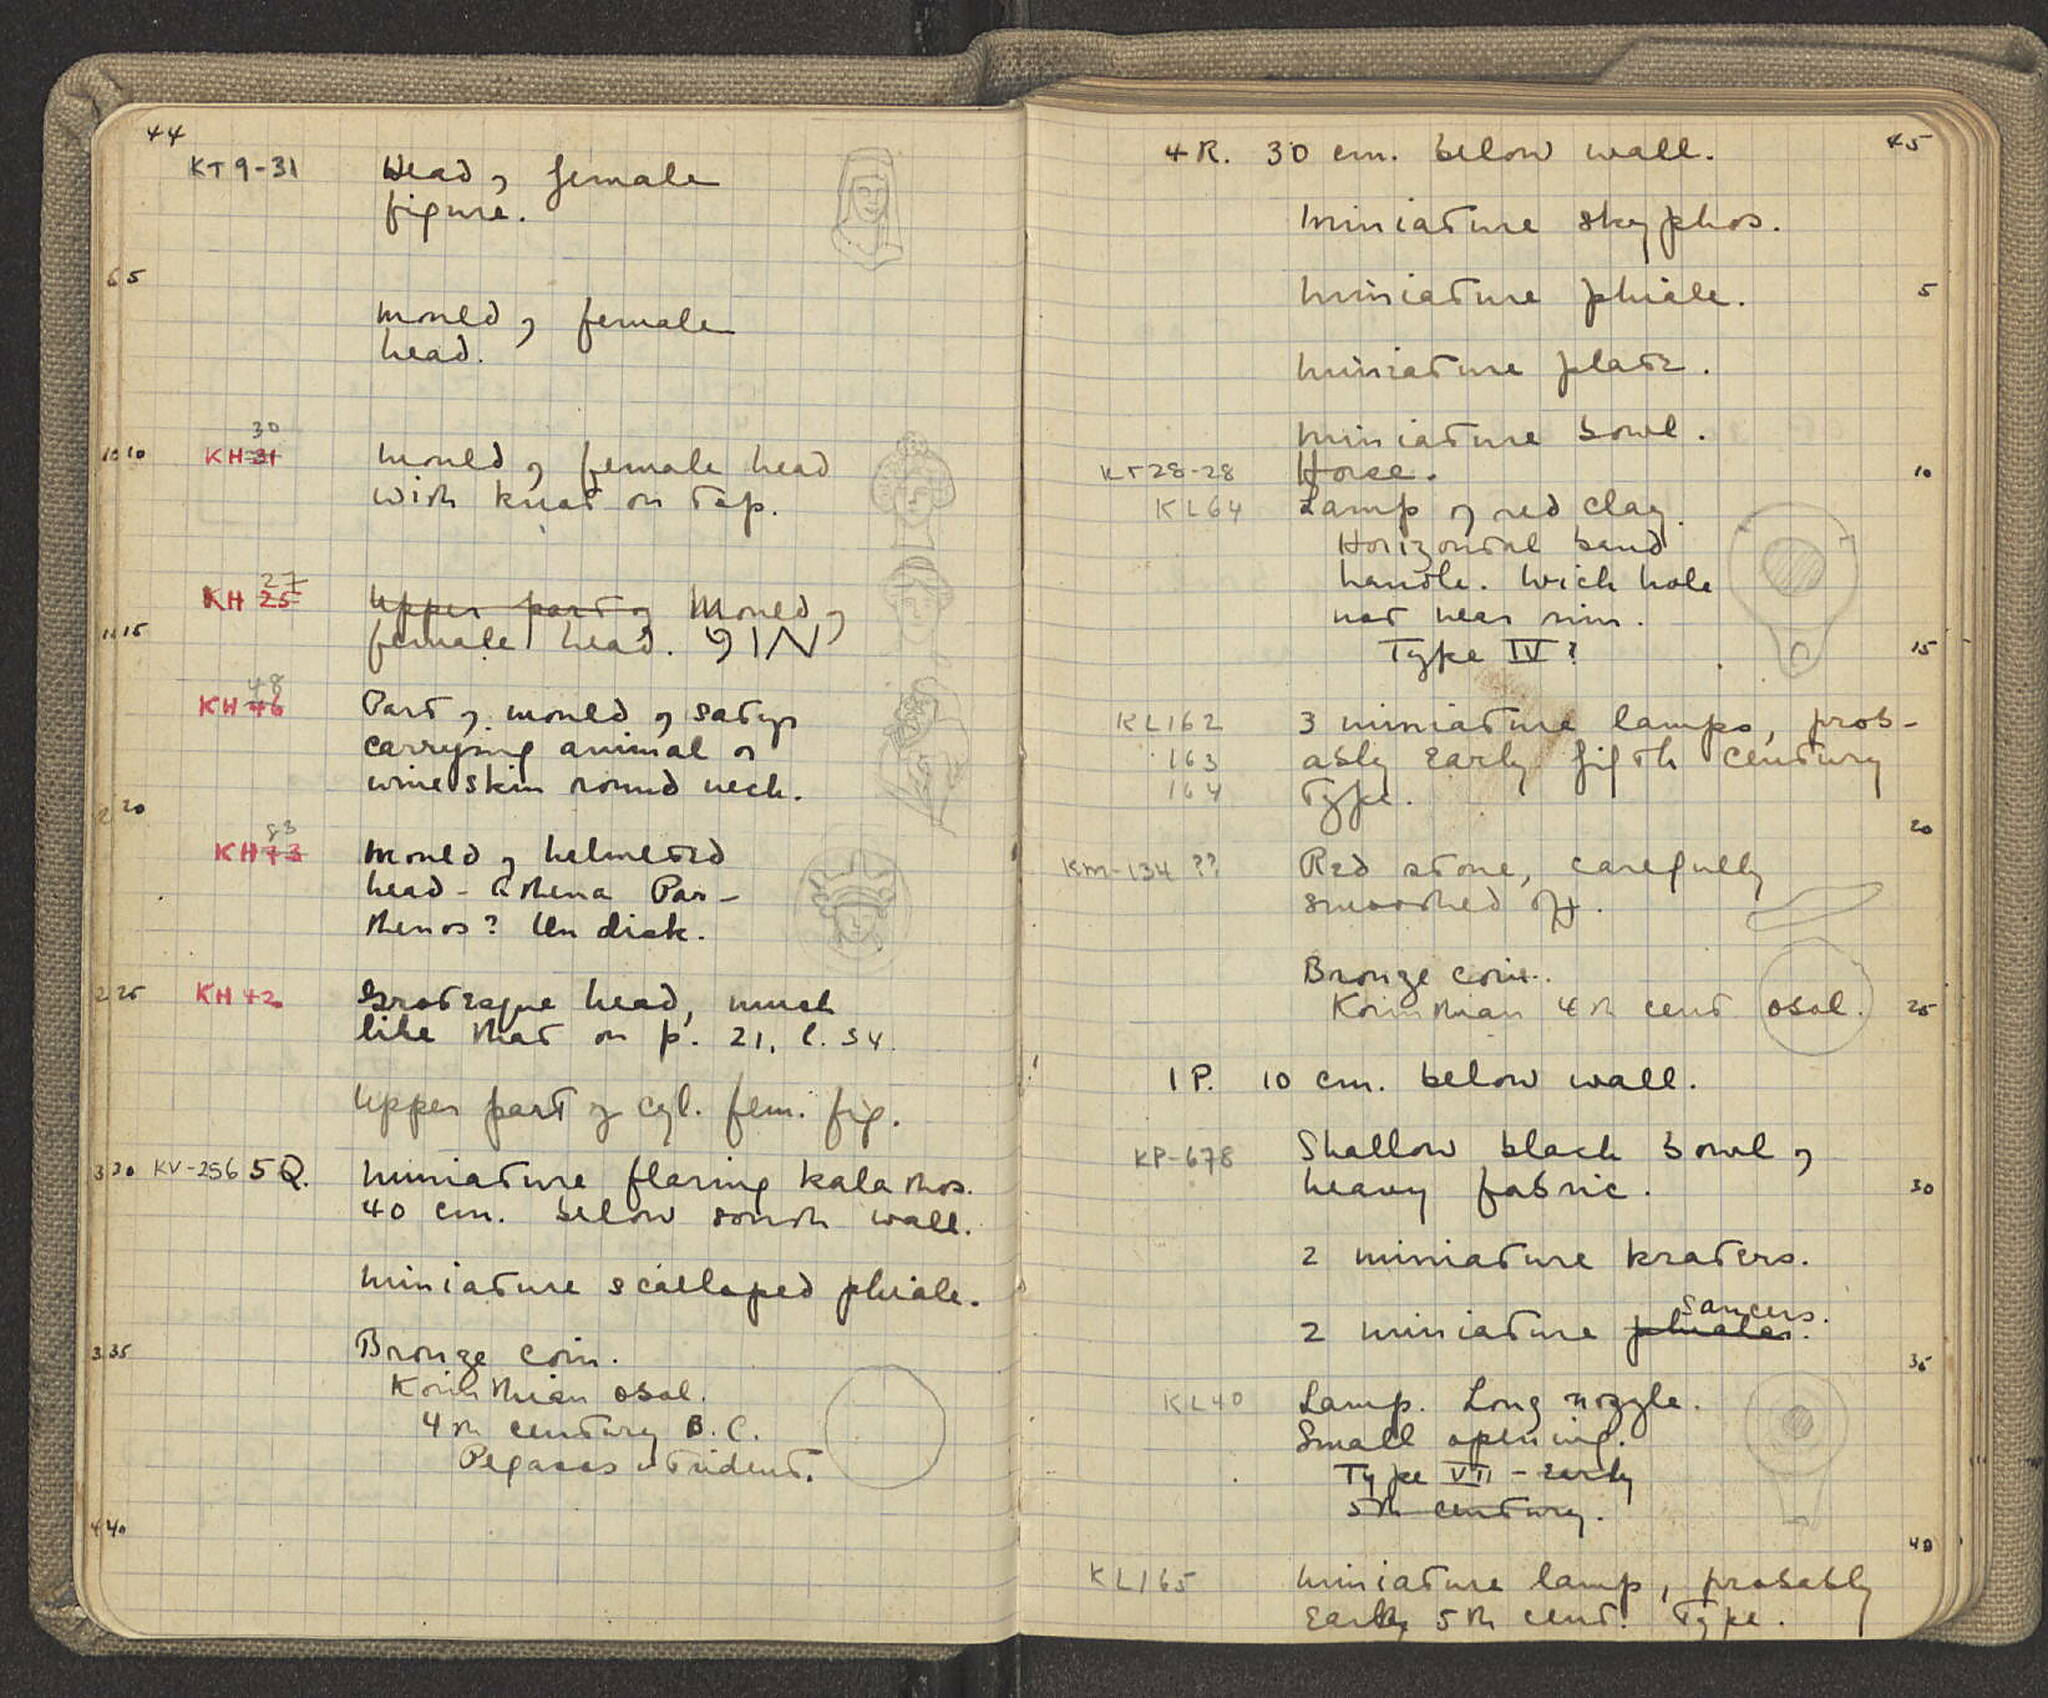 44
KT 9-31 Head of female
figure.
5
Mould of female
head.
30
10 KH 31 Mould of female head
with knot on top.
27
KH 25 Upper part of Mould of
15 female head.
48
KH 46 Part of mould of satyr
carrying animal or
wine skin round neck.
20
83
KH 73 Mould of helmeted
head - Athena Par-
thenos? On disk.
25 KH 42 Grotesque head, much
like that on p. 21, l. 34.
Upper part of cyl. fem. fig.
30 KV-256 5Q. Miniature flaring kalathos.
40 cm. below south wall.
Miniature scalloped phiale.
35 Bronze coin.
Korinthian obol.
4th century B.C.
Pegasos + Trident.
40
45
4 R. 30 cm. below wall.
Miniature skyphos.
Miniature phiale. 5
Miniature plate.
Miniature bowl.
KT28-28 Horse. 10
KL64 Lamp of red clay.
Horizontal band
handle. Wick hole
not near rim.
Type IV? 15
KL162 3 miniature lamps, prob-
163 ably early fifth century
164 type.
20
KM-134 ?? Red stone, carefully
smoothed off.
Bronze coin.
Korinthian 4th cent obol. 25
1 P. 10 cm. below wall.
KP-678 Shallow black bowl of
heavy fabric. 30
2 miniature kraters.
saucers.
2 miniature phialai.
35
KL40 Lamp. Long nozzle.
Small opening.
Type VII - Early
5th century.
40
KL165 Miniature lamp, probably
Early 5th cent. Type.